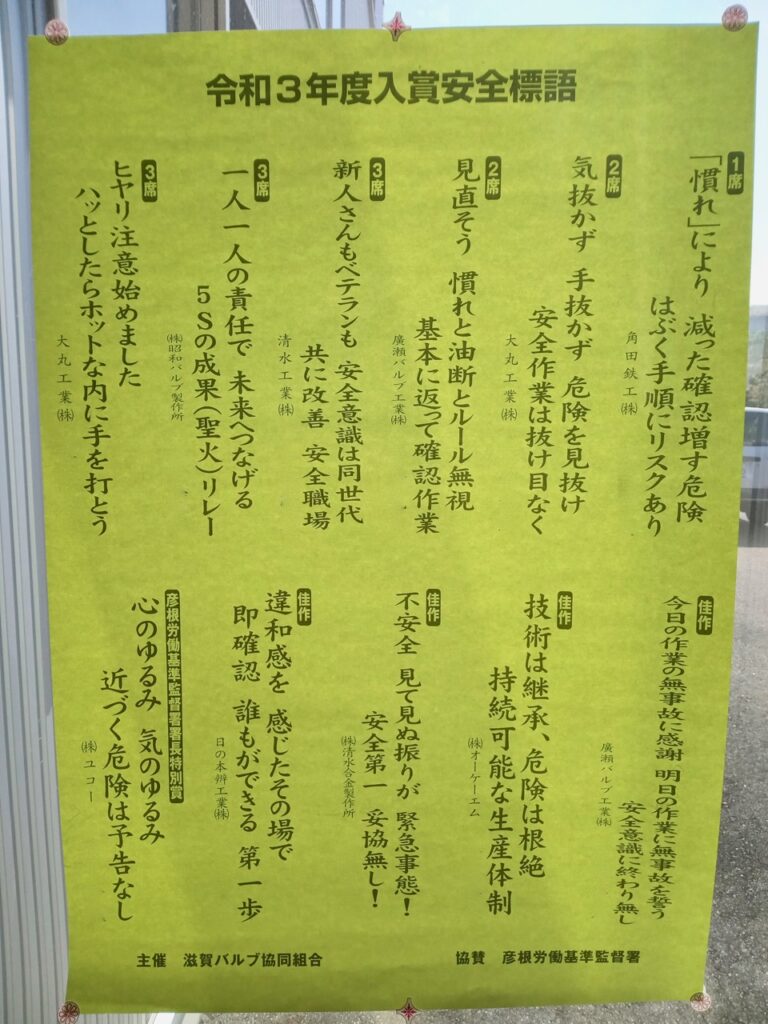 令和3年度入賞安全標語
1席
「慣れ」により　減った確認増す危険
はぶく手順にリスクあり
角田鉄工㈱
2席
気抜かず　手抜かず　危険を見抜け
安全作業は抜け目なく
大丸工業㈱
2席
見直そう　慣れと油断とルール無視
基本に返って確認作業
廣瀬バルブ工業㈱
3席
新人さんもベテランも　安全意識は同世代
共に改善　安全職場
清水工業㈱
3席
一人一人の責任で　未来へつなげる
5Sの成果(聖火)リレー
㈱昭和バルブ製作所
3席
ヒヤリ注意始めました
ハッとしたらホットな内に手を打とう
大丸工業㈱
佳作
今日の作業の無事故に感謝　明日の作業に無事故を誓う
安全意識に終わり無し
廣瀬バルブ工業㈱
佳作
技術は継承、危険は根絶
持続可能な生産体制
㈱オーケーエム
佳作
不安全　見て見ぬ振りが　緊急事態！
安全第一　妥協無し！
㈱清水合金製作所
佳作
違和感を　感じたその場で
即確認　誰もができる　第一歩
日の本辨工業㈱
彦根労働基準監督署署長特別賞
心のゆるみ　気のゆるみ
近づく危険は予告なし
㈱ユコー
主催　滋賀バルブ協同組合
協賛　彦根労働基準監督署